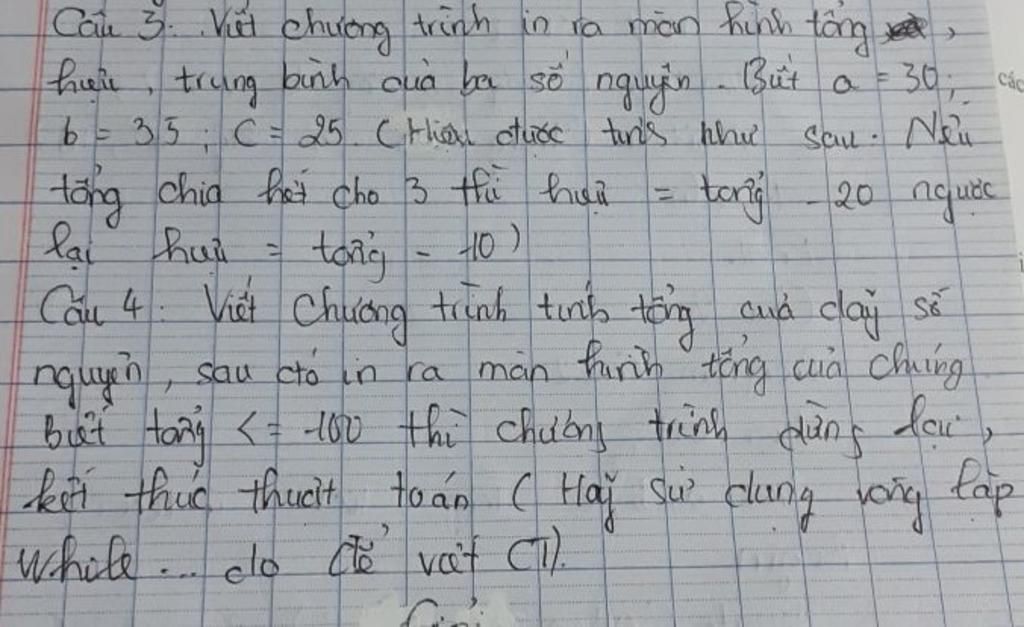 Câu 3. Viết chương trình in ra màn hình tổng,
hiệu, trung bình của ba số nguyên. Biết a = 30; các
b = 35; c = 25. (Hiệu được tính như sau. Nếu
tổng chia hết cho 3 thì hiệu = tổng - 20 ngược
lại hiệu = tổng - 10)
Câu 4. Viết chương trình tính tổng của dãy số
nguyên, sau đó in ra màn hình tổng của chúng
Biết tổng <= -100 thì chương trình dừng lại,
kết thúc thuật toán (Hãy sử dụng vòng lặp
While... do để viết CT).